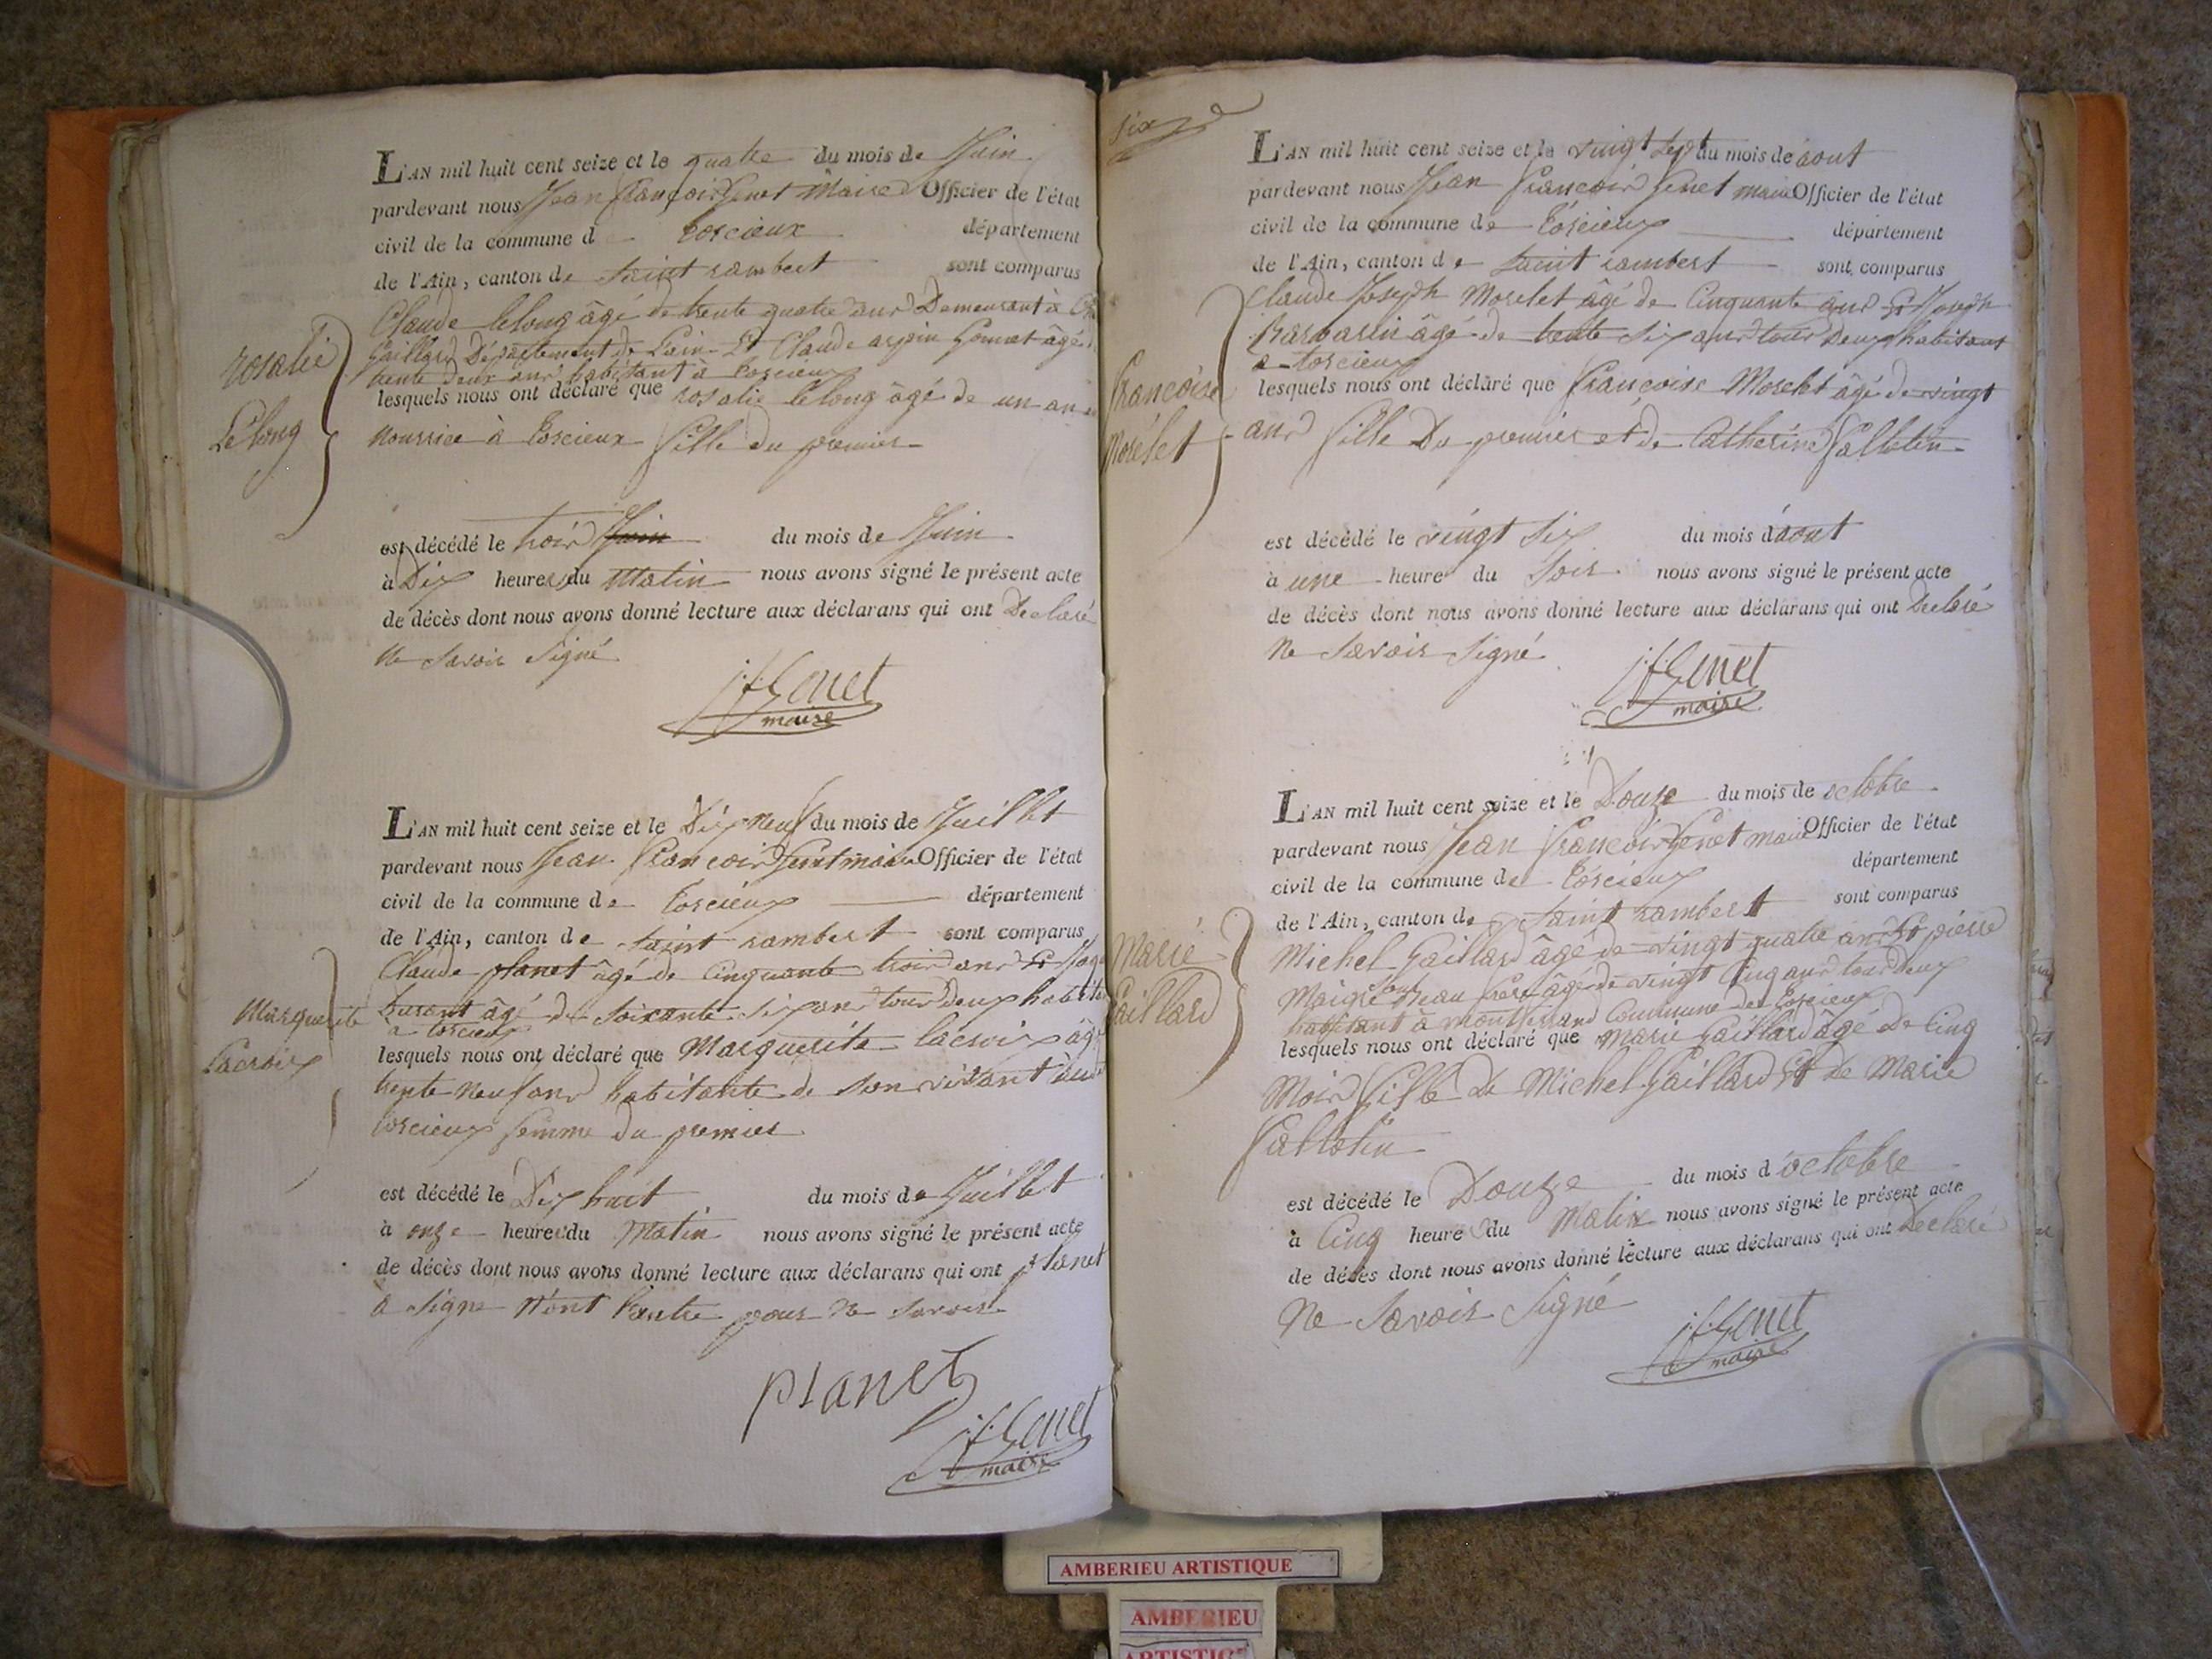 L'AN mil huit cent seize et le quatre du mois de Juin
pardevant nous Jean françois Genet Maire Officier de l'état
civil de la commune d torcieux département
de l'Ain, canton de Saint rambert sont comparus
Claude lelong âgé de trente quatre ans Demeurant à
Gaillard Département de Lain Et Claude âgé
trente deux ans habitant à torcieux
lesquels nous ont déclaré que rosalie lelong âgé de un an
nourrice à torcieux fille du premier
rosalie
Lelong
est décédé le trois Juin du mois de Juin
à Dix heures du Matin nous avons signé le présent acte
de décès dont nous avons donné lecture aux déclarans qui ont Declaré
ne Savoir Signé
jf Genet
maire
L'AN mil huit cent seize et le Dix neuf du mois de Juillet
pardevant nous Jean françois Genet maire Officier de l'état
civil de la commune de torcieux département
de l'Ain, canton de Saint rambert sont comparus
Claude planet âgé de Cinquante trois ans Et
âgé de Soixante Six ans tous deux
à torcieux
lesquels nous ont déclaré que Marguerite lacroix
trente neuf ans habitante de Son vivant
torcieux femme du premier
Marguerite
Lacroix
est décédé le Dix huit du mois de Juillet
à onze heures du Matin nous avons signé le présent acte
de décès dont nous avons donné lecture aux déclarans qui ont planet
à Signé Non lautre pour ne Savoir
PLANET
jf Genet
maire
Six
L'AN mil huit cent seize et le vingt Sept du mois de aout
pardevant nous Jean françois Genet maire Officier de l'état
civil de la commune de torcieux département
de l'Ain, canton de Saint rambert sont comparus
Claude Joseph Morelet âgé de Cinquante ans Et Joseph
Barbarin âgé de trente Six ans tous Deux habitant
a torcieux
lesquels nous ont déclaré que françoise Morelet âgé de vingt
ans fille Du premier et de Catherine Gallotin
françoise
Morélet
est décédé le vingt Six du mois d'aout
à une heure du Soir nous avons signé le présent acte
de décès dont nous avons donné lecture aux déclarans qui ont Declaré
Ne Savoir Signé
jf Genet
maire
L'AN mil huit cent seize et le Douze du mois de octobre
pardevant nous Jean françois Genet maire Officier de l'état
civil de la commune de torcieux département
de l'Ain, canton de Saint rambert sont comparus
Michel Gaillard âgé de vingt quatre ans Et pierre
Maigre Son Beau frere âgé de vingt Cinq ans tous Deux
habitant à montferrand Commune de torcieux
lesquels nous ont déclaré que Marie Gaillard âgé de Cinq
Mois fille de Michel Gaillard Et de Marie
Gallotin
Marie
Gaillard
est décédé le Douze du mois d'octobre
à Cinq heures du Matin nous avons signé le présent acte
de décès dont nous avons donné lecture aux déclarans qui ont Declaré
Ne Savoir Signé
jf Genet
maire
AMBERIEU ARTISTIQUE
AMBERIEU
ARTISTIQUE